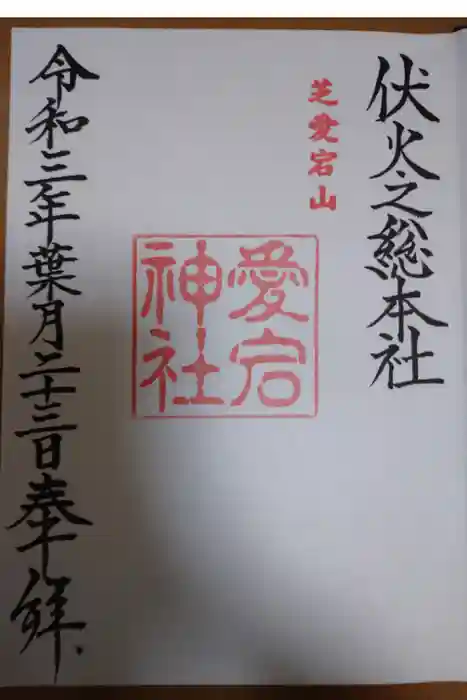 伏火之総本社
芝愛宕山
愛宕
神社
令和三年葉月二十三日奉拝